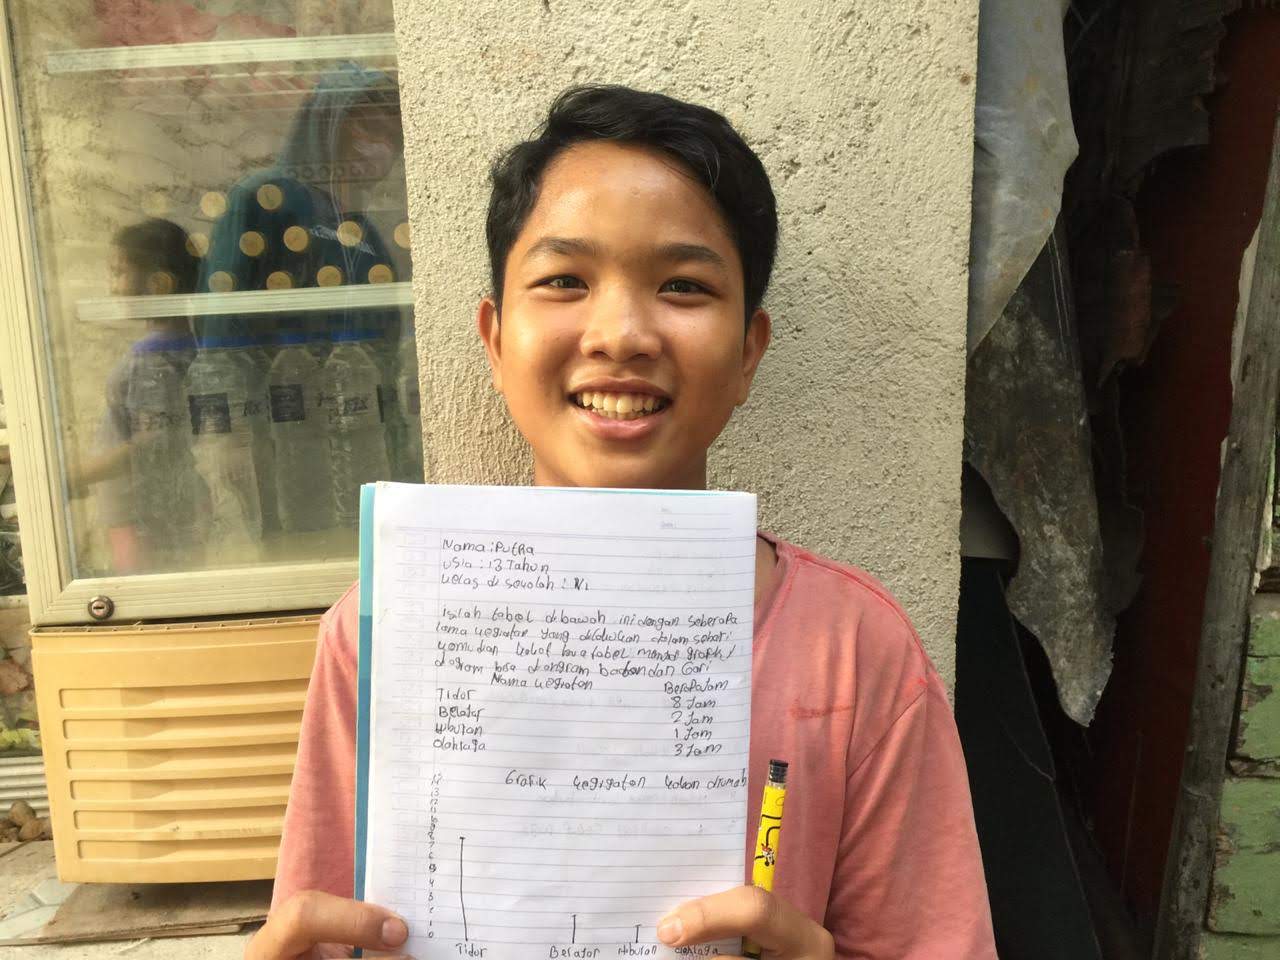 Nama : Putra
Usia : 13 Tahun
Kelas di sekolah : VI
Isilah tabel dibawah ini dengan seberapa
lama kegiatan yang dilakukan dalam sehari
kemudian kalian buat tabel menjadi grafik/
diagram bisa diangram batang dan Gari
Nama kegiatan Berapa Jam
Tidur 8 Jam
Belajar 2 Jam
Hiburan 1 Jam
Olahraga 3 Jam
Grafik kegigatan kalian dirumah
14
13
12
11
10
9
8
7
6
5
4
3
2
1
0
Tidur Belajar Hiburan Olahraga